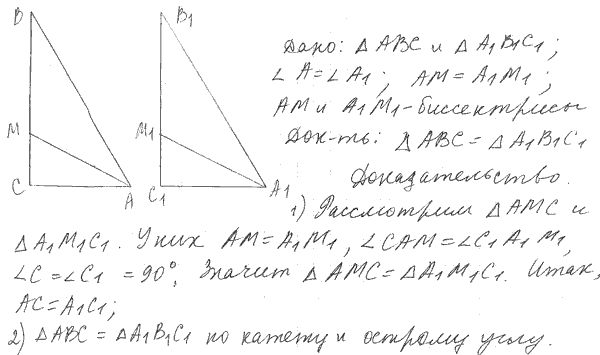 B
B1
M
M1
C
A
C1
A1
Дано: △ABC и △A1B1C1;
∠A=∠A1; AM=A1M1;
AM и A1M1-биссектрисы
Док-ть: △ABC=△A1B1C1
Доказательство.
1) Рассмотрим △AMC и
△A1M1C1. У них AM=A1M1, ∠CAM=∠C1A1M1,
∠C=∠C1 =90°, Значит △AMC=△A1M1C1. Итак,
AC=A1C1;
2) △ABC=△A1B1C1 по катету и острому углу.